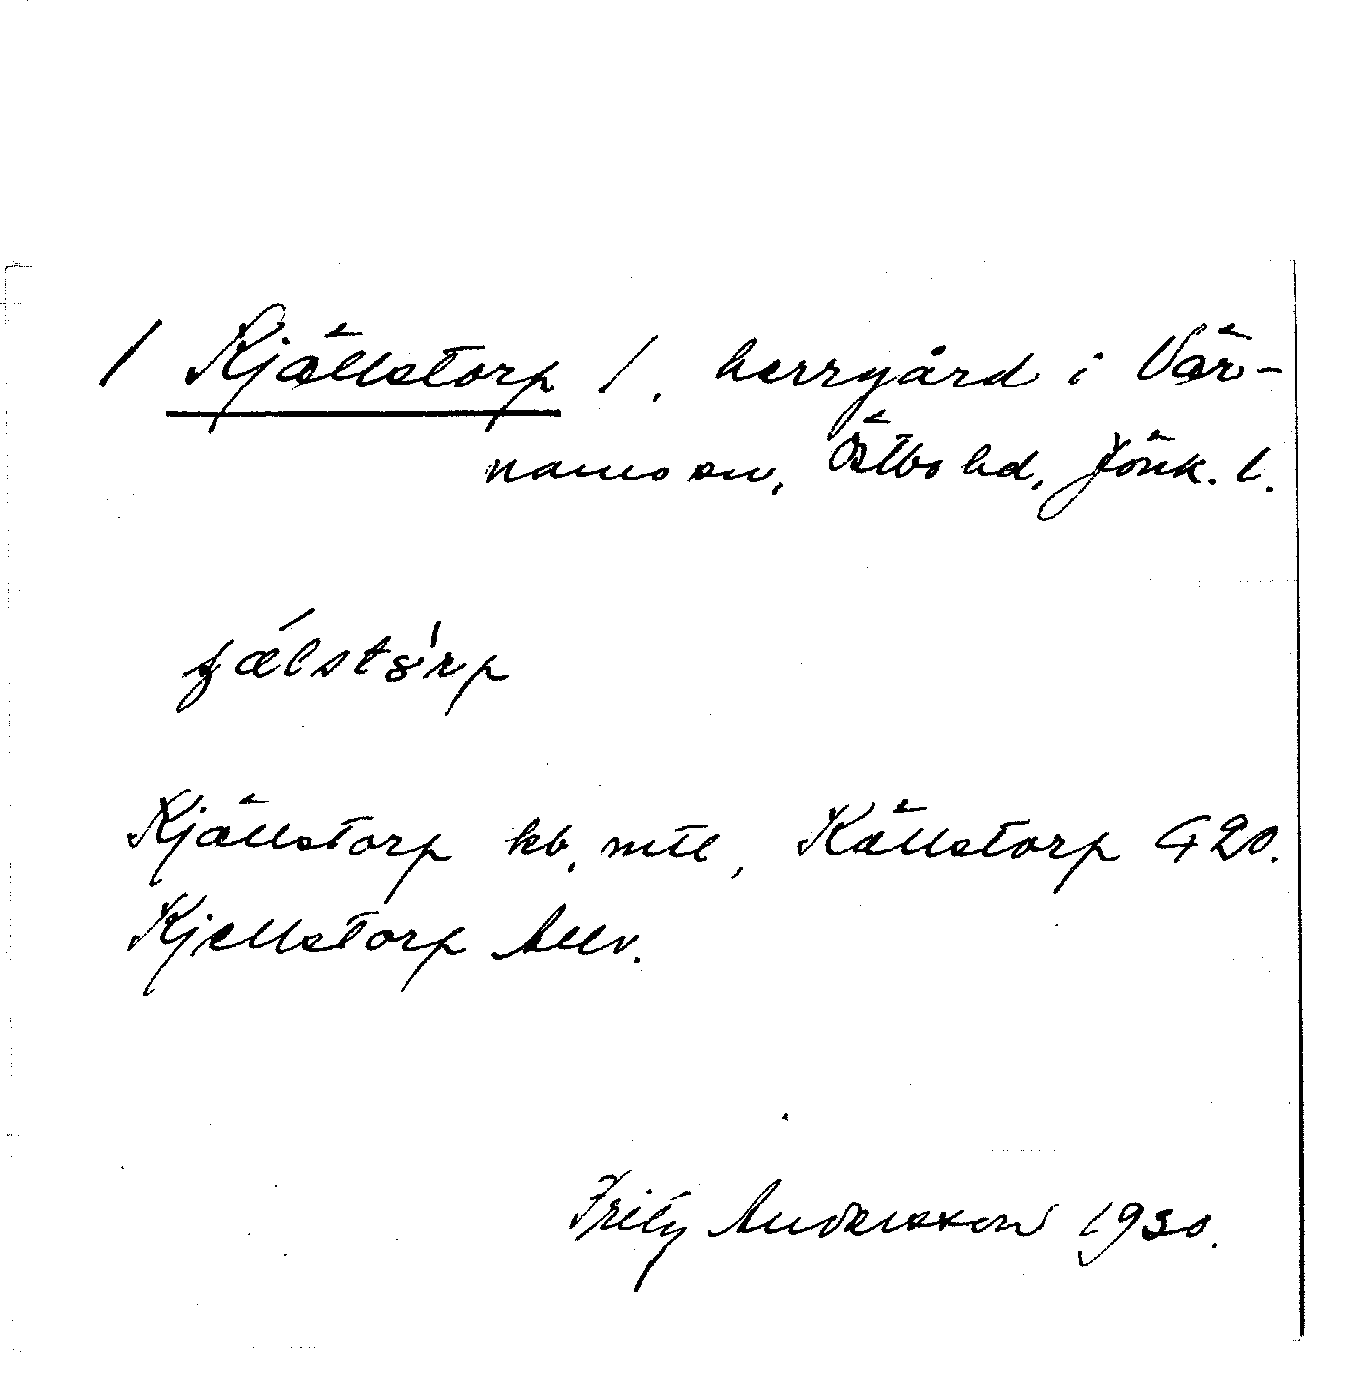 / Kjällstorp /. herrgård i Vär-
namo sn, Östbo hd, Jönk. l.
Kjällstorp kb, mtl, Källstorp G 20.
Kjellstorp Allv.
Fritz Andersson 1930.